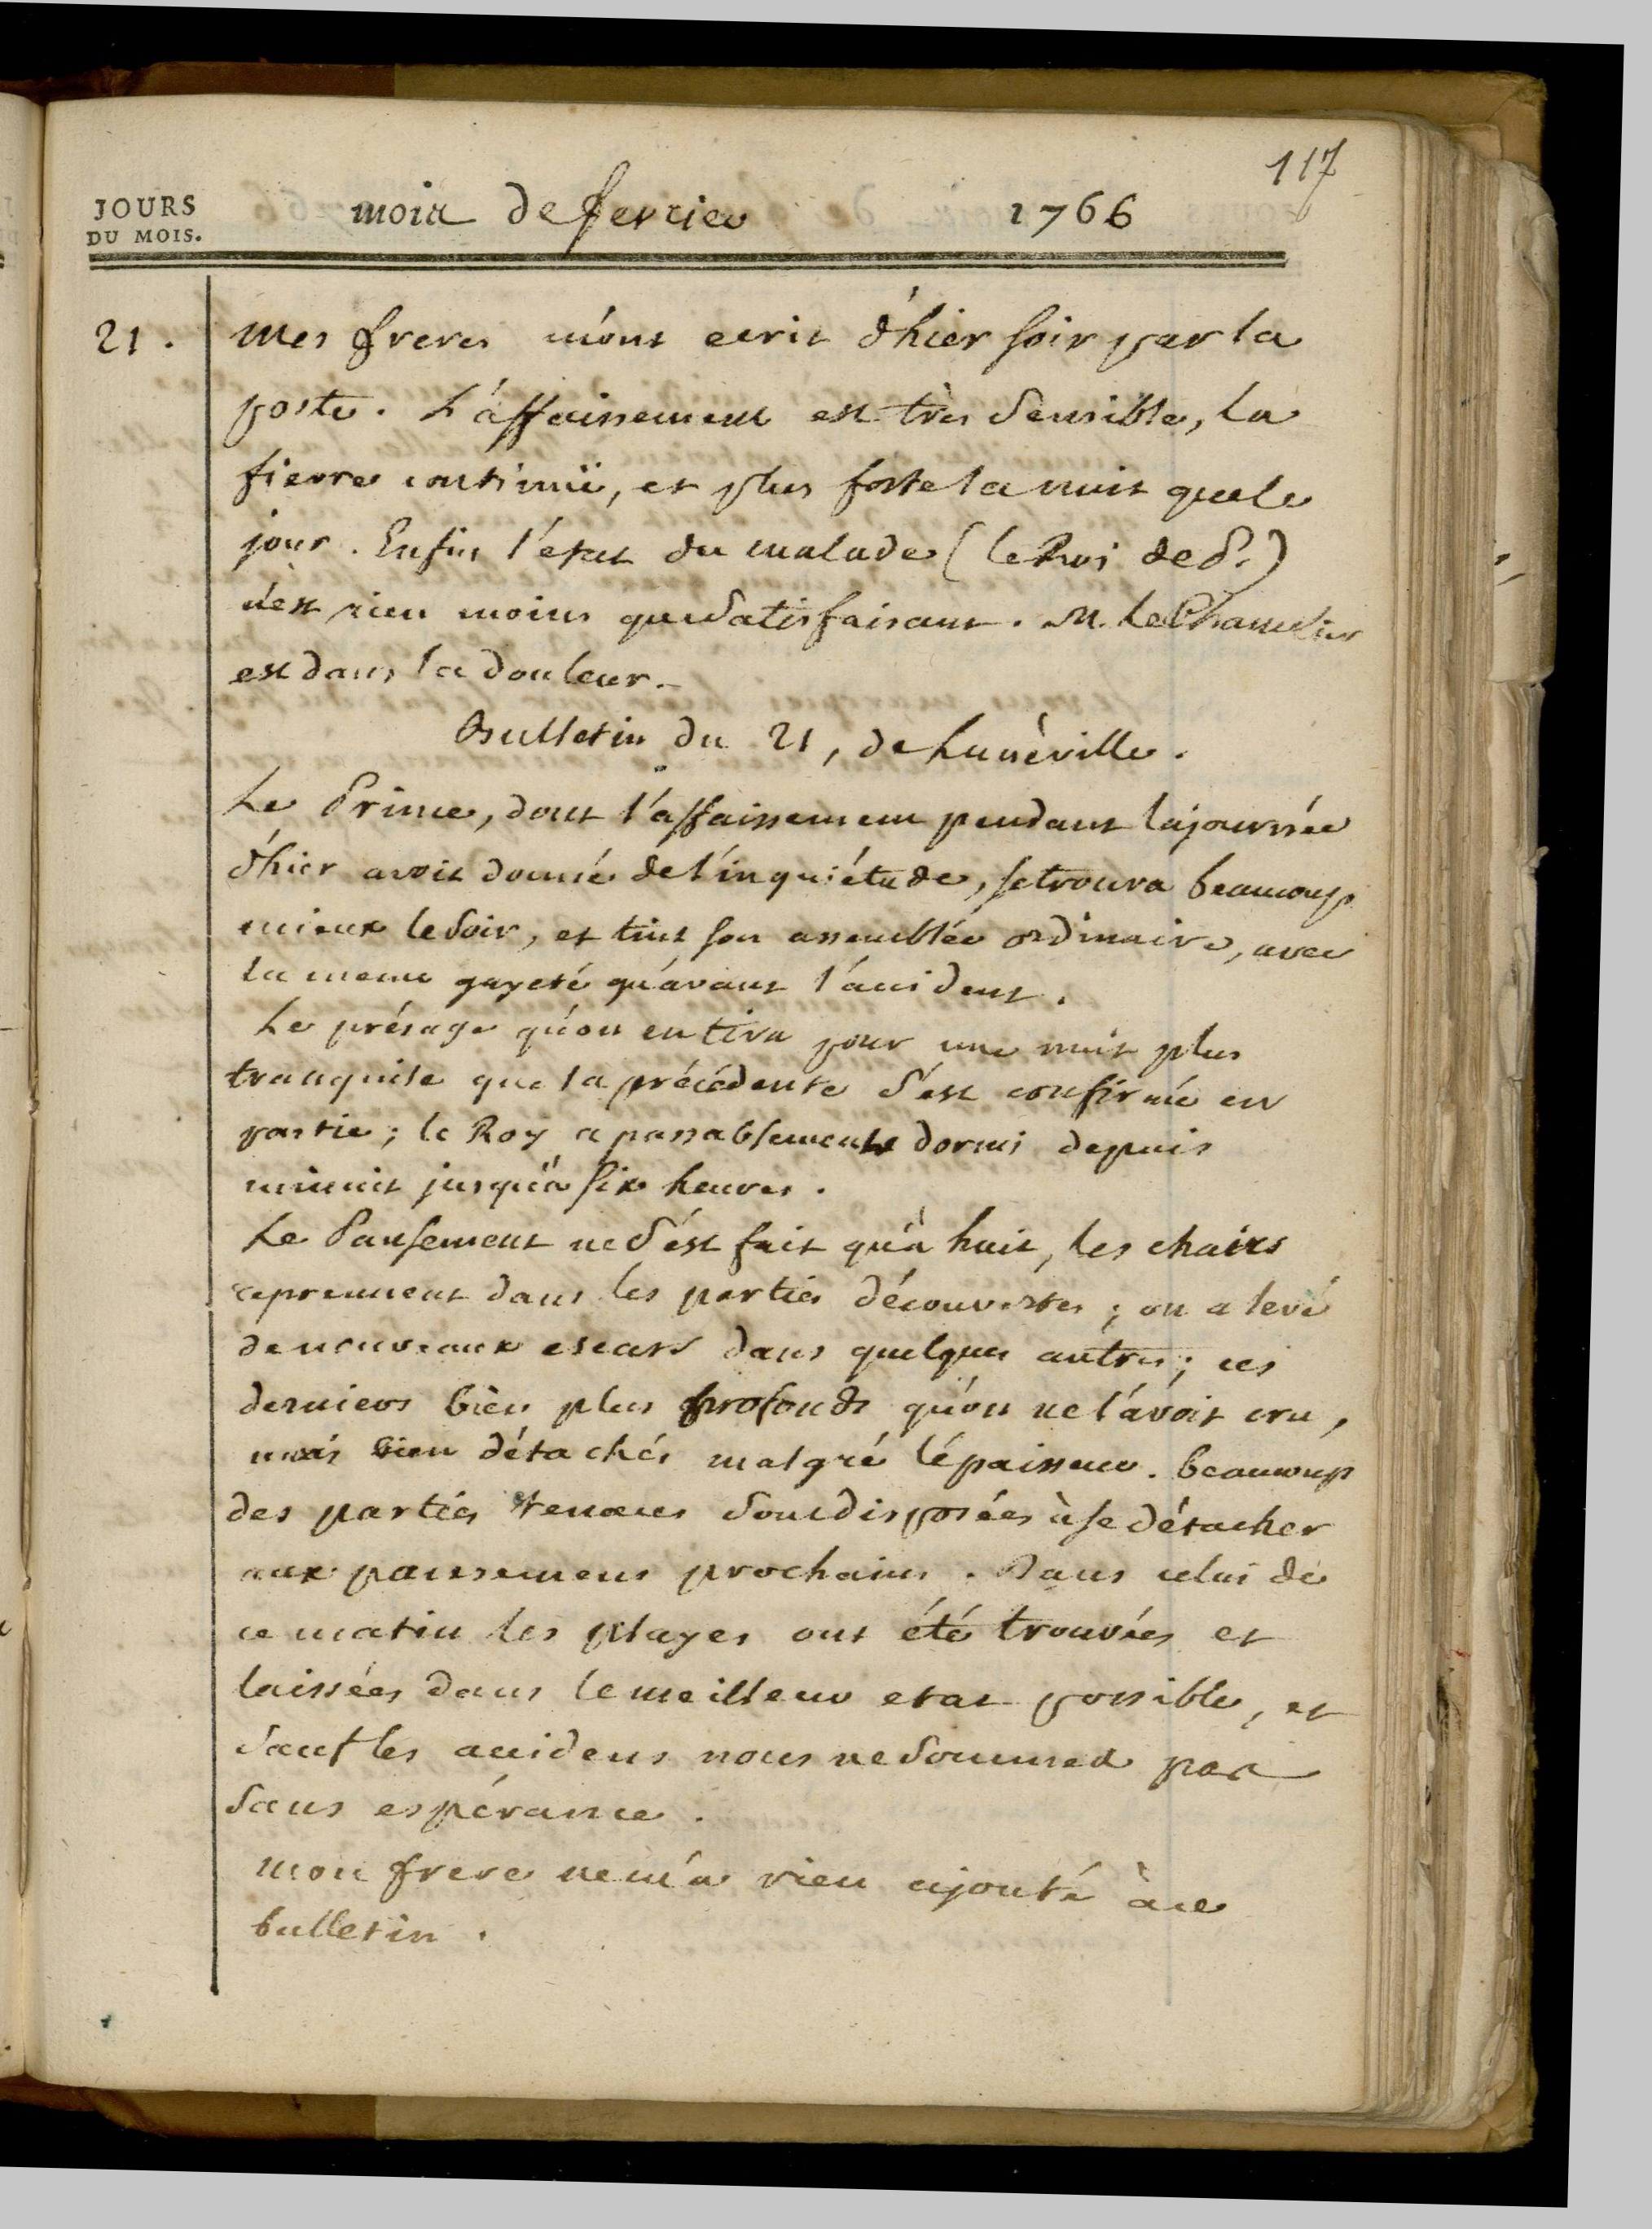 117
JOURS
DU MOIS.
mois de fevrier 1766
21.
mes freres m'ont ecrit d'hier soir par la
poste. L'affaissement est très sensible, la
fievre continuë, et plus forte la nuit que le
jour. Enfin l'etat du malade (le Roi de P.)
n'est rien moins que satisfaisant. M. le Chancelier
est dans la douleur.
Bulletin du 21, de Lunéville.
Le Prince, dont l'affaissement pendant la journée
d'hier avoit donné de l'inquiétude, se trouva beaucoup
mieux le soir, et tint son assemblée ordinaire, avec
la meme gayeté qu'avant l'accident.
Le présage qu'on en tira pour une nuit plus
tranquile que la précédente s'est confirmé en
partie; le Roy a passablement dormi depuis
minuit jusqu'à six heures.
Le Pansement ne s'est fait qu'à huit, les chairs
reprennent dans les parties découvertes; on a levé
de nouveaux escars dans quelques autres; ces
derniers bien plus profonds qu'on ne l'avoit cru,
mais bien détachés malgré l'épaisseur. beaucoup
des parties sont disposées à se détacher
aux pansemens prochains. Dans celui de
ce matin les playes ont été trouvées et
laissées dans le meilleur etat possible, et
sauf les accidens nous ne sommes pas
sans espérance.
mon frere ne m'a rien ajouté à ce
bulletin.